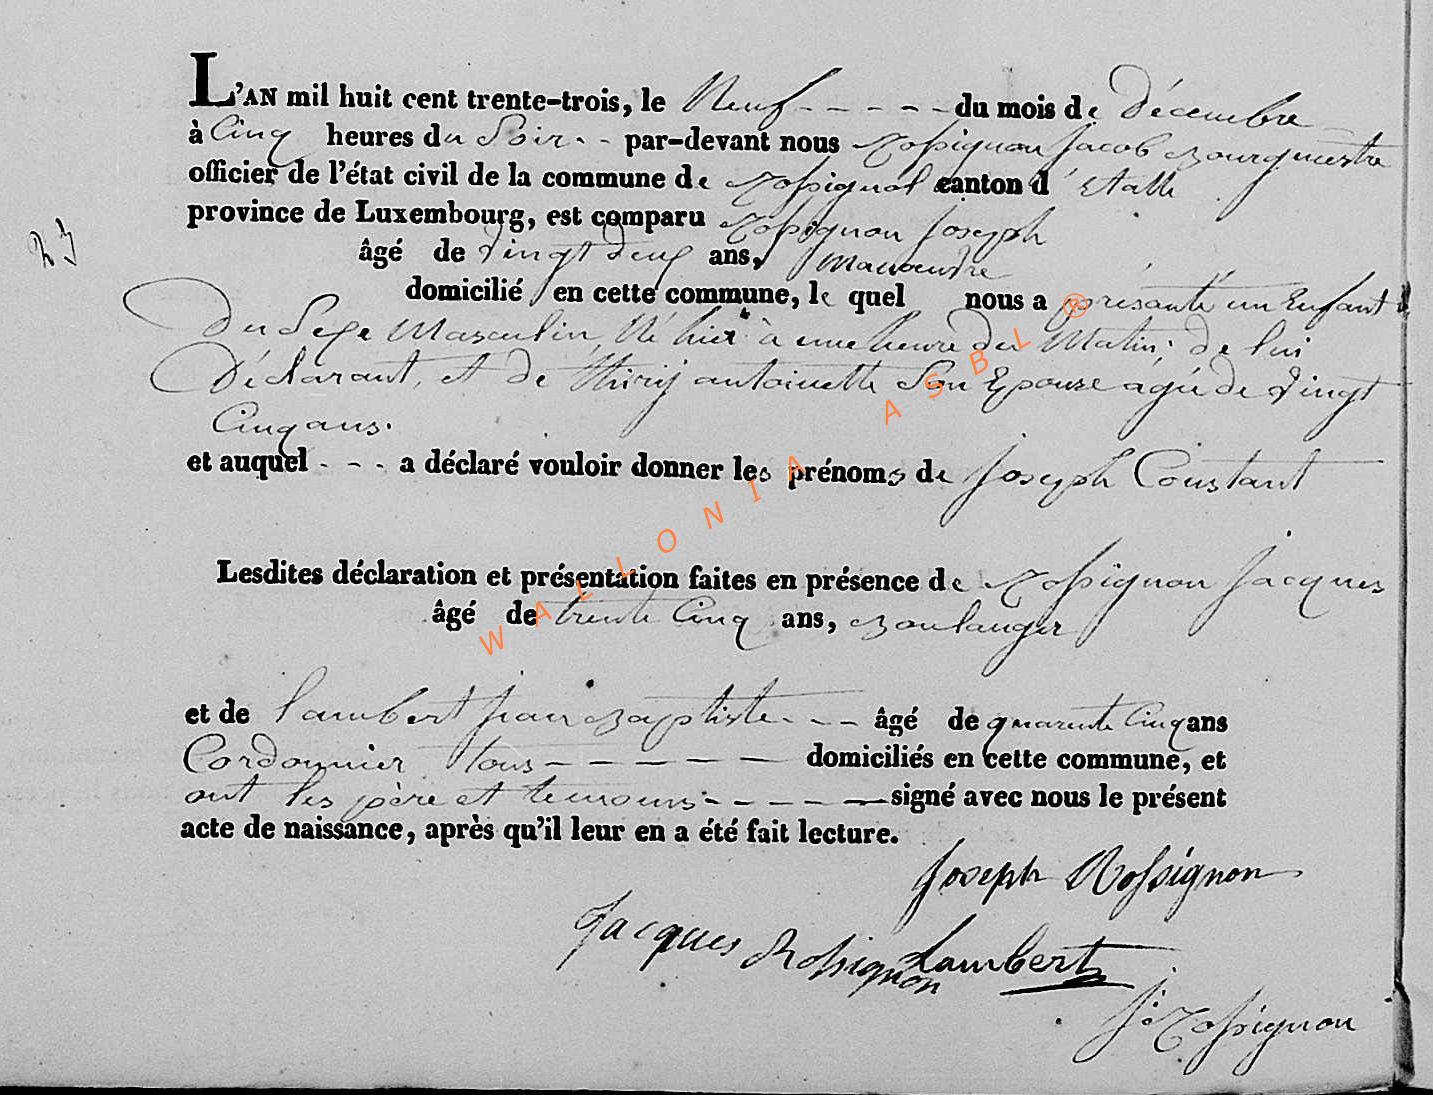 L'AN mil huit cent trente-trois, le Neuf - - - - - du mois de Décembre
à Cinq heures du Soir - - par-devant nous Rossignon Jacob Bourguestre
officier de l'état civil de la commune de Rossignol canton d' Etalle
province de Luxembourg, est comparu Rossignon Joseph
23
âgé de vingt deux ans, Manoeuvre
domicilié en cette commune, le quel nous a présanté un Enfant
Du Sexe Masculin, Né hier à une heure du Matin; de lui
Déclarant, et de Thiry antoinette Son Epouse agée de vingt
Cinq ans.
et auquel - - - a déclaré vouloir donner les prénoms de Joseph Constant
Lesdites déclaration et présentation faites en présence de Rossignon Jacques
âgé de trente Cinq ans, Boulanger
et de Lambert Jean Baptiste - - - âgé de quarente Cinq ans
Cordonnier tous - - - - - - domiciliés en cette commune, et
ont les père et temoins - - - - - signé avec nous le présent
acte de naissance, après qu'il leur en a été fait lecture.
Joseph Rossignon
Jacques Rossignon Lambert
J: Rossignon
WALLONIA ASBL ®